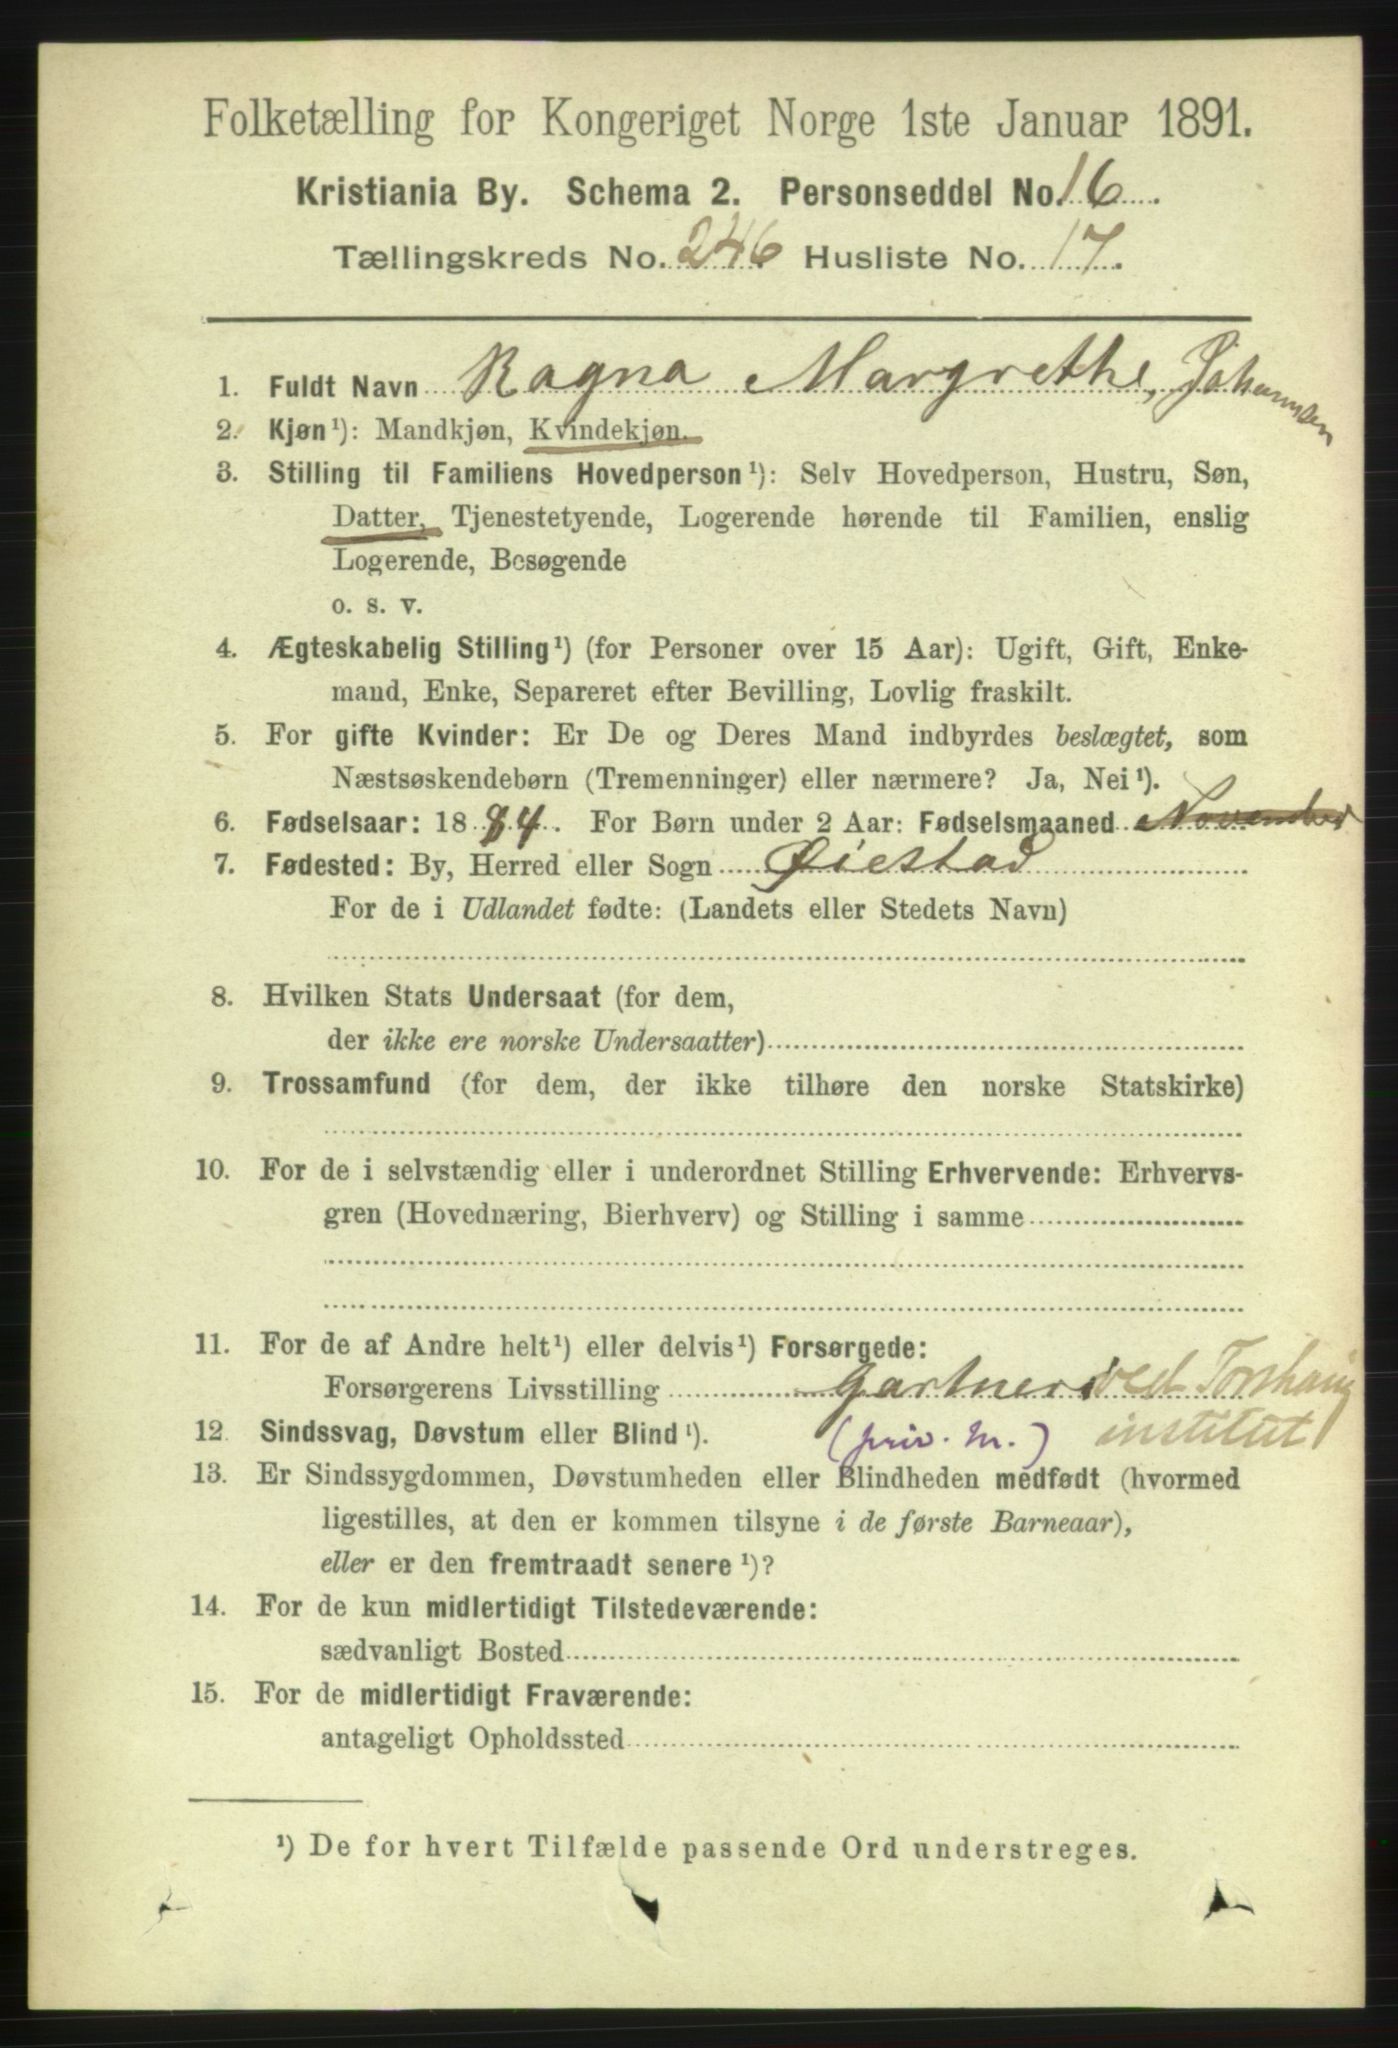 Folketælling for Kongeriget Norge 1ste Januar 1891.
Kristiania By. Schema 2. Personseddel No. 16.
Tællingskreds No. 246 Husliste No. 17.
1. Fuldt Navn Ragna Margrethe, Johannsen
2. Kjøn¹): Mandkjøn, Kvindekjøn.
3. Stilling til Familiens Hovedperson¹): Selv Hovedperson, Hustru, Søn,
Datter, Tjenestetyende, Logerende hørende til Familien, enslig
Logerende, Besøgende
o. s. v.
4. Ægteskabelig Stilling¹) (for Personer over 15 Aar): Ugift, Gift, Enke-
mand, Enke, Separeret efter Bevilling, Lovlig fraskilt.
5. For gifte Kvinder: Er De og Deres Mand indbyrdes beslægtet, som
Næstsøskendebørn (Tremenninger) eller nærmere? Ja, Nei¹).
6. Fødselsaar: 1884. For Børn under 2 Aar: Fødselsmaaned November
7. Fødested: By, Herred eller Sogn Øiestad
For de i Udlandet fødte: (Landets eller Stedets Navn)
8. Hvilken Stats Undersaat (for dem,
der ikke ere norske Undersaatter)
9. Trossamfund (for dem, der ikke tilhøre den norske Statskirke)
10. For de i selvstændig eller i underordnet Stilling Erhvervende: Erhvervs-
gren (Hovednæring, Bierhverv) og Stilling i samme
11. For de af Andre helt¹) eller delvis¹) Forsørgede:
Forsørgerens Livsstilling Gartner ved Torshaug
12. Sindssvag, Døvstum eller Blind¹). (priv. m.) institut
13. Er Sindssygdommen, Døvstumheden eller Blindheden medfødt (hvormed
ligestilles, at den er kommen tilsyne i de første Barneaar),
eller er den fremtraadt senere¹)?
14. For de kun midlertidigt Tilstedeværende:
sædvanligt Bosted
15. For de midlertidigt Fraværende:
antageligt Opholdssted
¹) De for hvert Tilfælde passende Ord understreges.